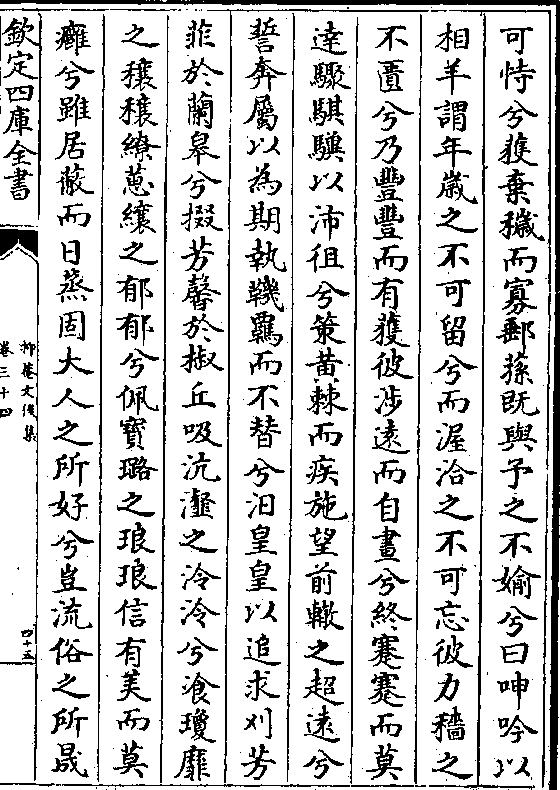 可恃兮獲棄穢而寡郵蓀既與予之不媮兮曰呻吟以
相羊謂年歲之不可留兮而渥洽之不可忘彼力穡之
不匱兮乃豐豐而有獲彼涉遠而自畫兮終蹇蹇而莫
達驟騏驥以沛徂兮策黄棘而疾施望前轍之超遠兮
誓奔屬以為期執鞿羈而不替兮汩皇皇以追求刈芳
菲於蘭皋兮掇芳馨於椒丘吸沆瀣之泠泠兮飡瓊靡
之穰穰繚蕙纕之郁郁兮佩寶璐之琅琅信有美而莫
癰兮雖居蔽而日蒸固大人之所好兮豈流俗之所晟
欽定四庫全書
抑菴文後集
卷三十四
四十五